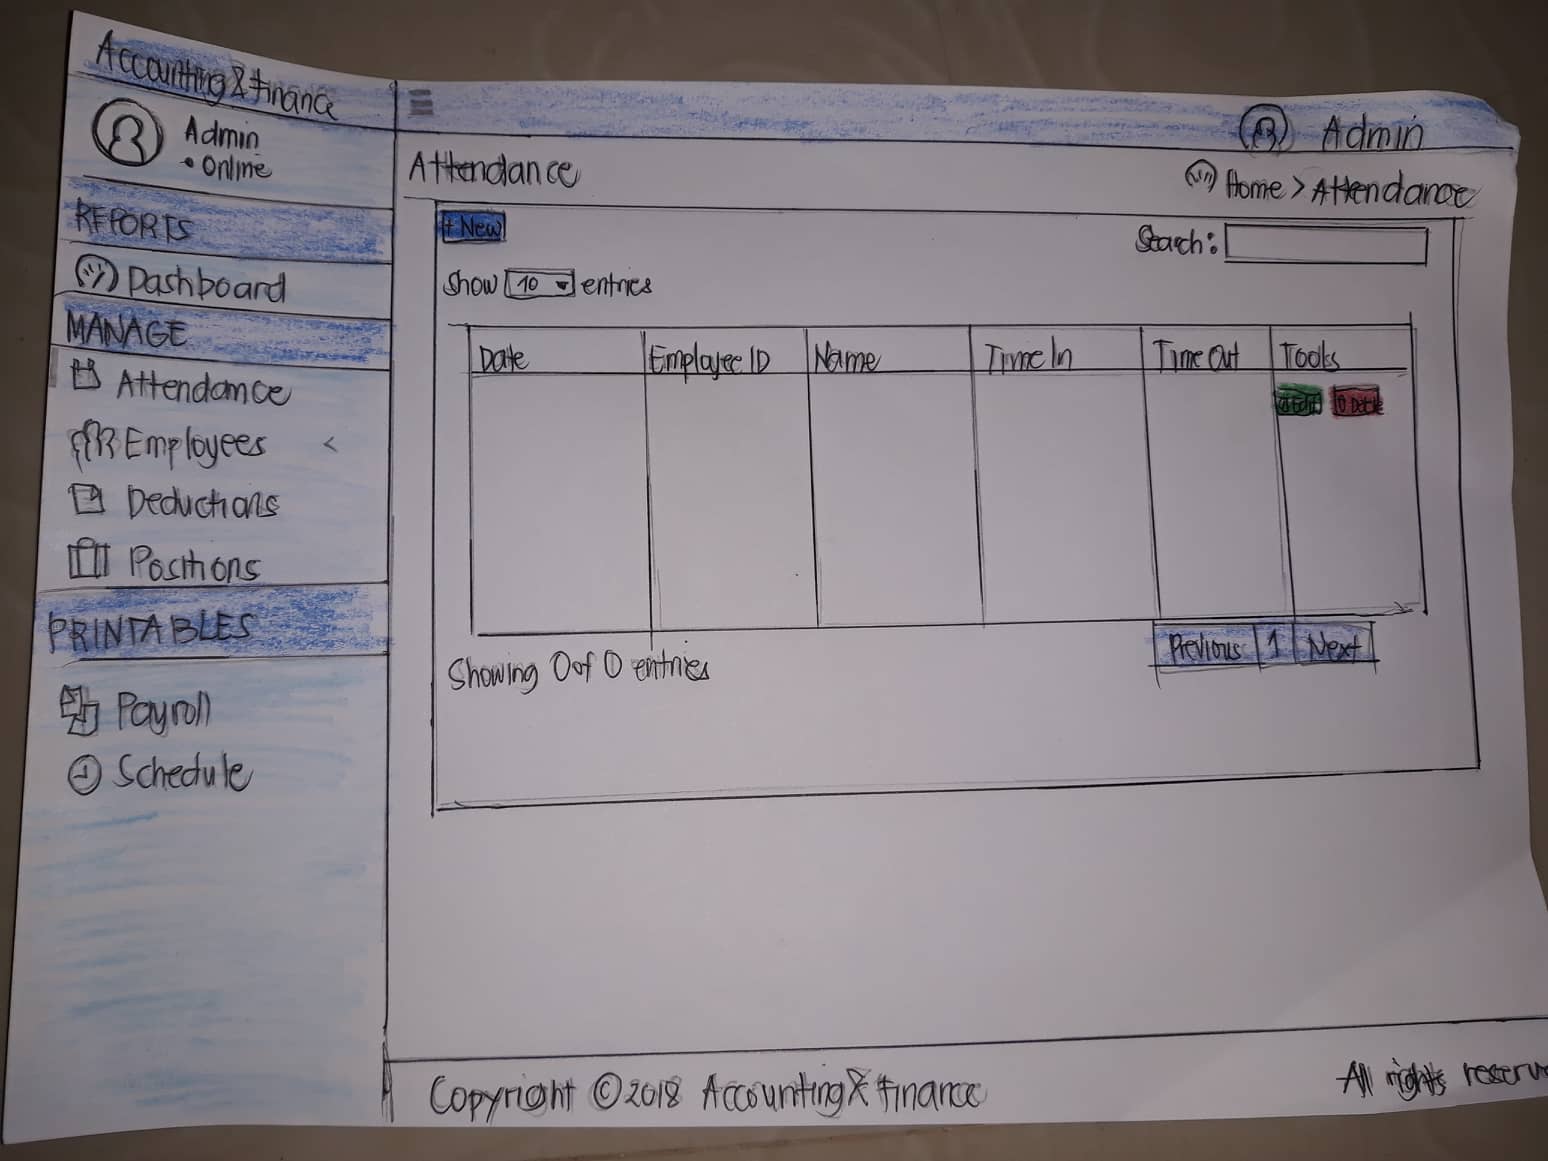 Accounting & Finance
Admin
• Online
REPORTS
Dashboard
MANAGE
Attendance
Employees <
Deductions
Positions
PRINTABLES
Payroll
Schedule
Admin
Attendance
Home > Attendance
+ New
Search:
Show 10 entries
Date Employee ID Name Time In Time Out Tools
Edit Delete
Showing 0 of 0 entries
Previous 1 Next
Copyright © 2018 Accounting & Finance
All rights reserv